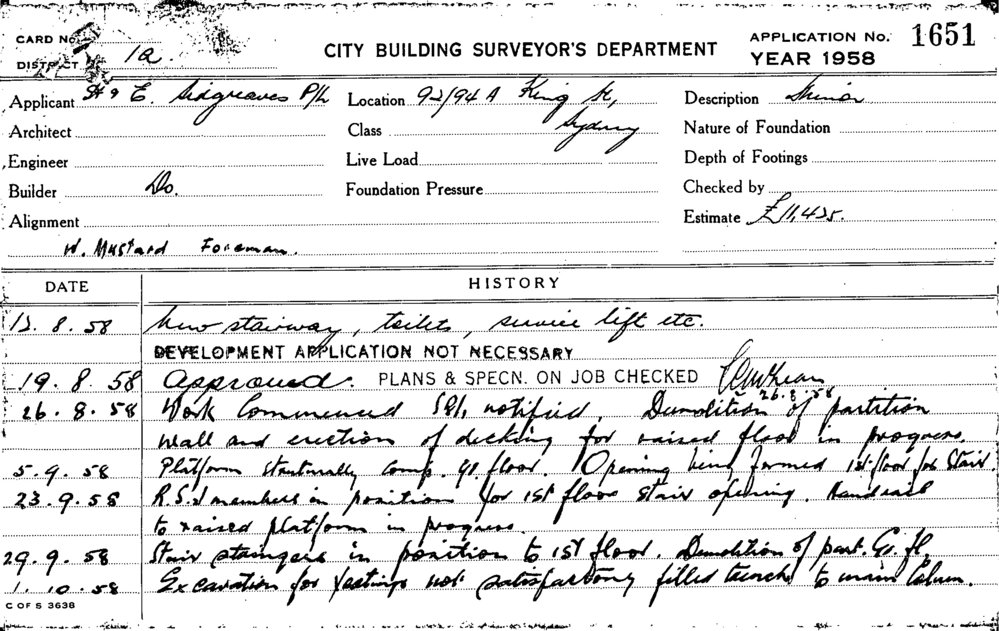 CARD No.
DISTRICT 1a.
CITY BUILDING SURVEYOR'S DEPARTMENT
APPLICATION No. 1651
YEAR 1958
Applicant H & E. Sidgreaves P/L
Location 92/94A King St,
Sydney
Description Minor
Architect
Class
Nature of Foundation
Engineer
Live Load
Depth of Footings
Builder Do.
Foundation Pressure
Checked by
Alignment
Estimate £11,425.
W. Mustard Foreman.
DATE
HISTORY
12. 8. 58 New stairway, toilets, service lift etc.
DEVELOPMENT APPLICATION NOT NECESSARY
19. 8. 58 Approved. PLANS & SPECN. ON JOB CHECKED
26.8.58
26. 8. 58 Work Commenced notified. Demolition of partition
wall and erection of decking for raised floor in progress.
5. 9. 58 Platform structurally comp. gd. floor. Opening being formed 1st floor for Stair.
23. 9. 58 R.S.J members in position for 1st floor stair opening. Handrail
to raised platform in progress.
29. 9. 58 Stair stringers in position to 1st floor. Demolition of part. Gd. fl,
1. 10. 58 Excavation for footings not satisfactory filled trench to main Column.
C OF S 3638